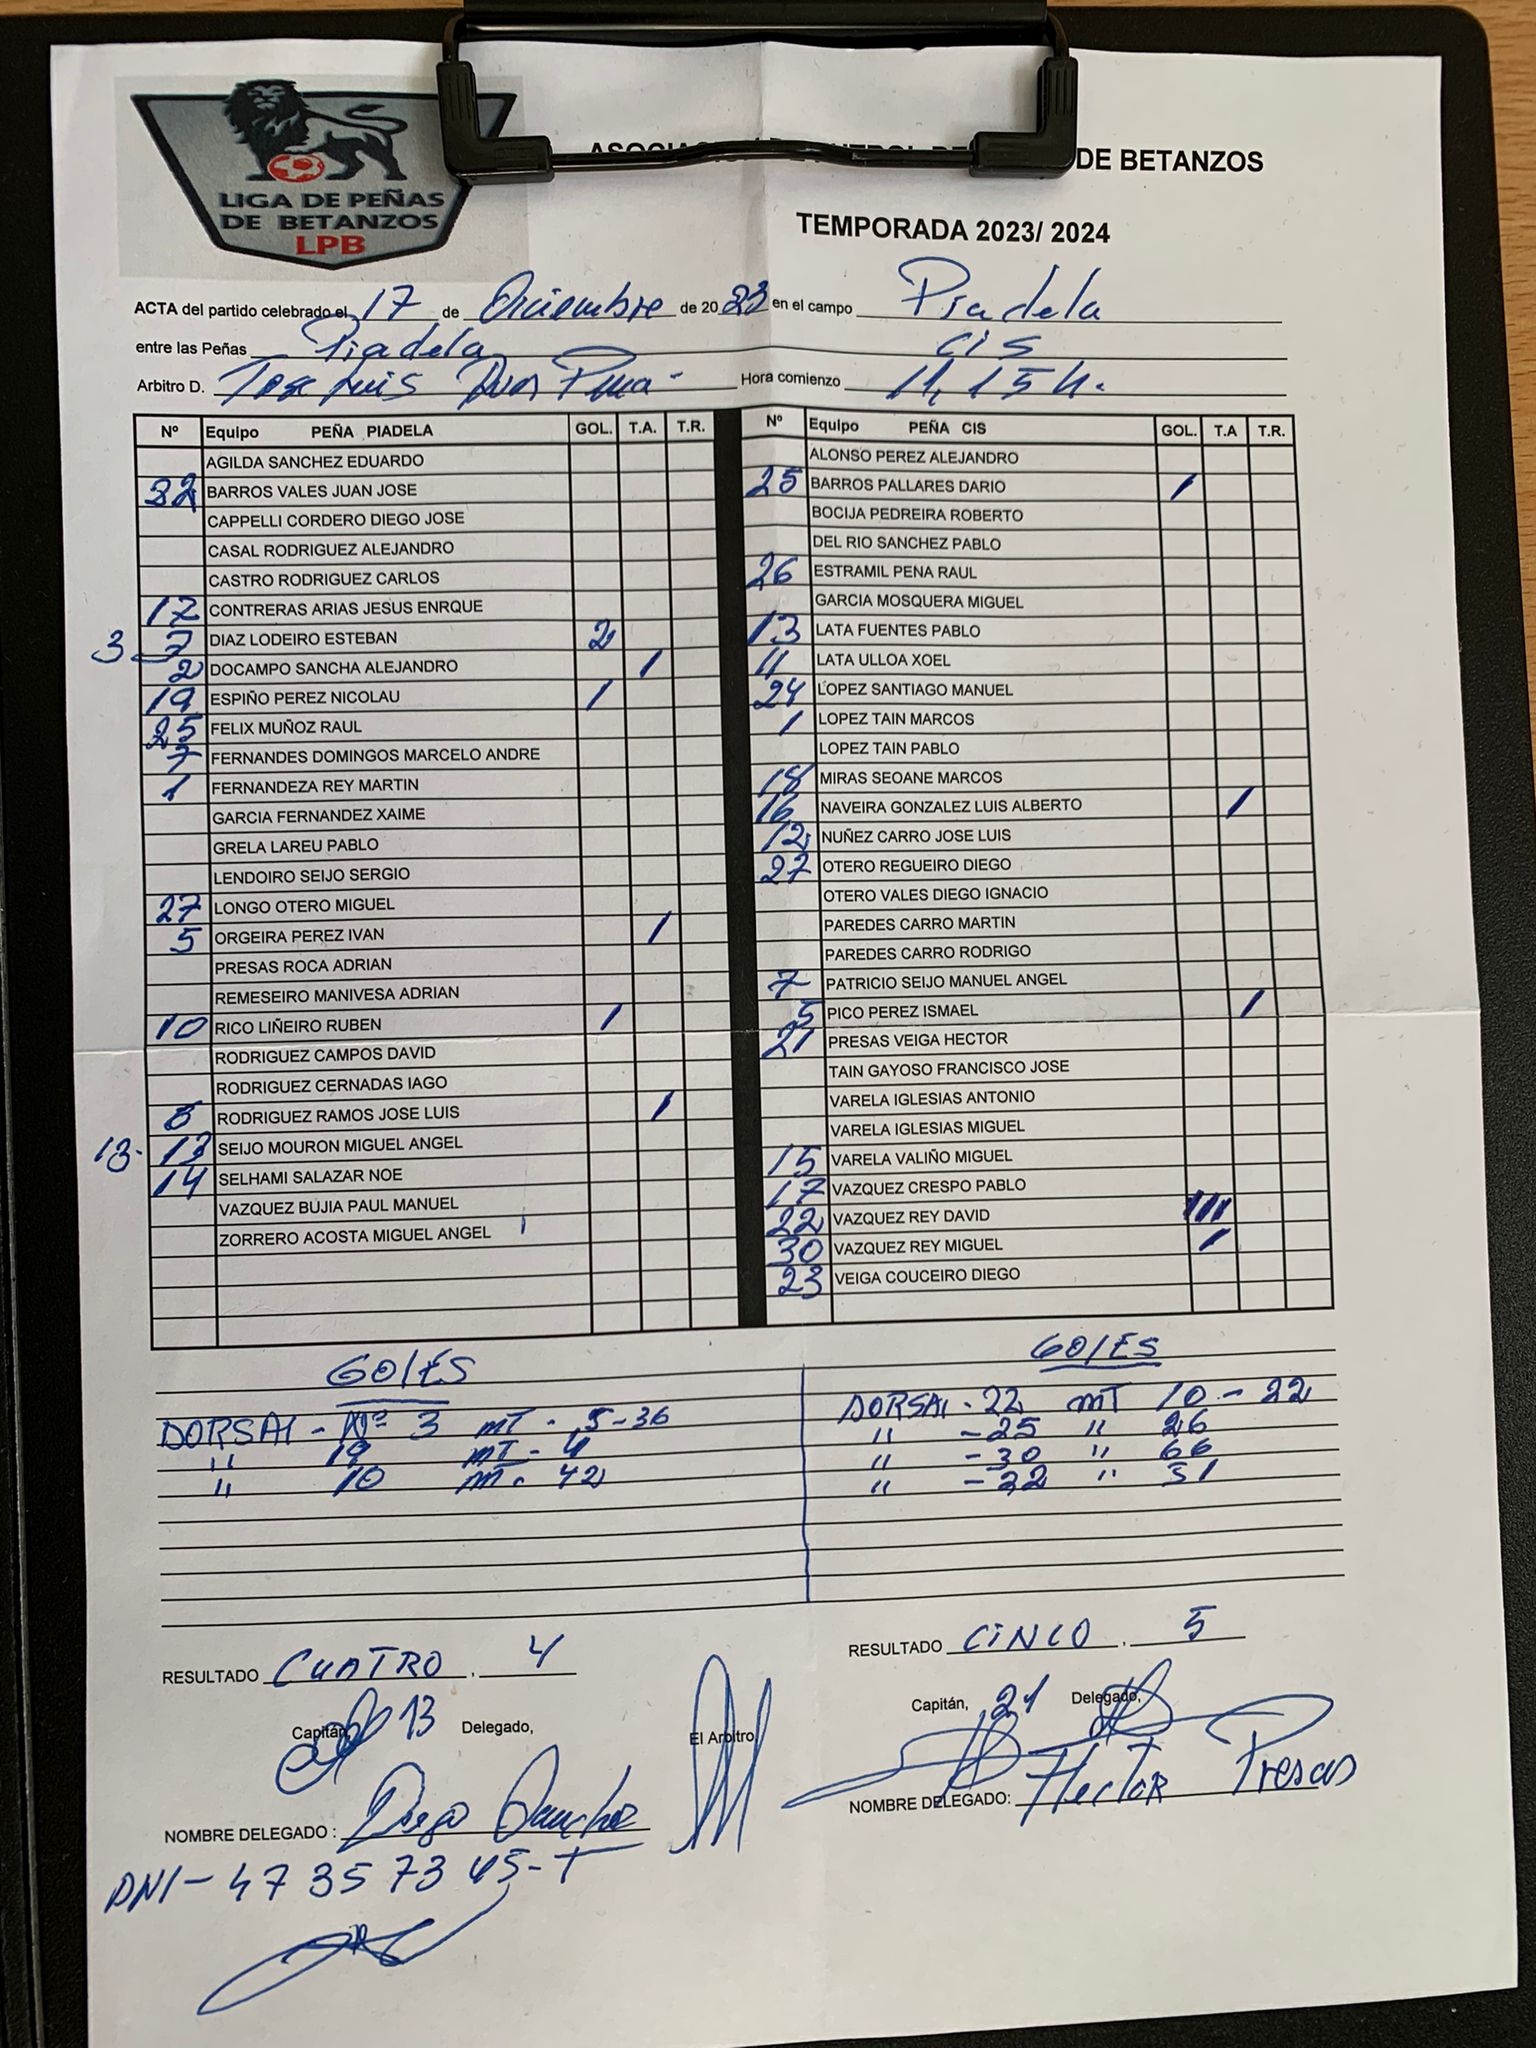 LIGA DE PEÑAS
DE BETANZOS
LPB
DE BETANZOS
TEMPORADA 2023/ 2024
ACTA del partido celebrado el 17 de Diciembre de 2023 en el campo Piadela
entre las Peñas Piadela CIS
Arbitro D. Jose Luis Hora comienzo 11,15 h.
Nº Equipo PEÑA PIADELA GOL. T.A. T.R.
AGILDA SANCHEZ EDUARDO
32 BARROS VALES JUAN JOSE
CAPPELLI CORDERO DIEGO JOSE
CASAL RODRIGUEZ ALEJANDRO
CASTRO RODRIGUEZ CARLOS
17 CONTRERAS ARIAS JESUS ENRQUE
3 DIAZ LODEIRO ESTEBAN 2
2 DOCAMPO SANCHA ALEJANDRO /
19 ESPIÑO PEREZ NICOLAU /
25 FELIX MUÑOZ RAUL
7 FERNANDES DOMINGOS MARCELO ANDRE
1 FERNANDEZA REY MARTIN
GARCIA FERNANDEZ XAIME
GRELA LAREU PABLO
LENDOIRO SEIJO SERGIO
27 LONGO OTERO MIGUEL
5 ORGEIRA PEREZ IVAN /
PRESAS ROCA ADRIAN
REMESEIRO MANIVESA ADRIAN
10 RICO LIÑEIRO RUBEN /
RODRIGUEZ CAMPOS DAVID
RODRIGUEZ CERNADAS IAGO
RODRIGUEZ RAMOS JOSE LUIS /
13- 13 SEIJO MOURON MIGUEL ANGEL
14 SELHAMI SALAZAR NOE
VAZQUEZ BUJIA PAUL MANUEL
ZORRERO ACOSTA MIGUEL ANGEL
Nº Equipo PEÑA CIS GOL. T.A T.R.
ALONSO PEREZ ALEJANDRO
25 BARROS PALLARES DARIO /
BOCIJA PEDREIRA ROBERTO
DEL RIO SANCHEZ PABLO
26 ESTRAMIL PENA RAUL
GARCIA MOSQUERA MIGUEL
13 LATA FUENTES PABLO
11 LATA ULLOA XOEL
24 LOPEZ SANTIAGO MANUEL
1 LOPEZ TAIN MARCOS
LOPEZ TAIN PABLO
18 MIRAS SEOANE MARCOS
16 NAVEIRA GONZALEZ LUIS ALBERTO /
12 NUÑEZ CARRO JOSE LUIS
27 OTERO REGUEIRO DIEGO
OTERO VALES DIEGO IGNACIO
PAREDES CARRO MARTIN
PAREDES CARRO RODRIGO
7 PATRICIO SEIJO MANUEL ANGEL
5 PICO PEREZ ISMAEL /
21 PRESAS VEIGA HECTOR
TAIN GAYOSO FRANCISCO JOSE
VARELA IGLESIAS ANTONIO
VARELA IGLESIAS MIGUEL
15 VARELA VALIÑO MIGUEL
17 VAZQUEZ CRESPO PABLO
22 VAZQUEZ REY DAVID ///
30 VAZQUEZ REY MIGUEL /
23 VEIGA COUCEIRO DIEGO
GOLES
DORSAL - Nº 3 MT - 5-36
" 19 MT - 4
" 10 MT - 42
GOLES
DORSAL - 22 MT 10 - 22
" - 25 " 26
" - 30 " 66
" - 22 " 51
RESULTADO CUATRO . 4
RESULTADO CINCO . 5
Capitán, 13 Delegado,
El Arbitro
Capitán, 21 Delegado,
NOMBRE DELEGADO : Diego Sanchez
NOMBRE DELEGADO: Hector Presas
DNI - 47 35 73 45 - T